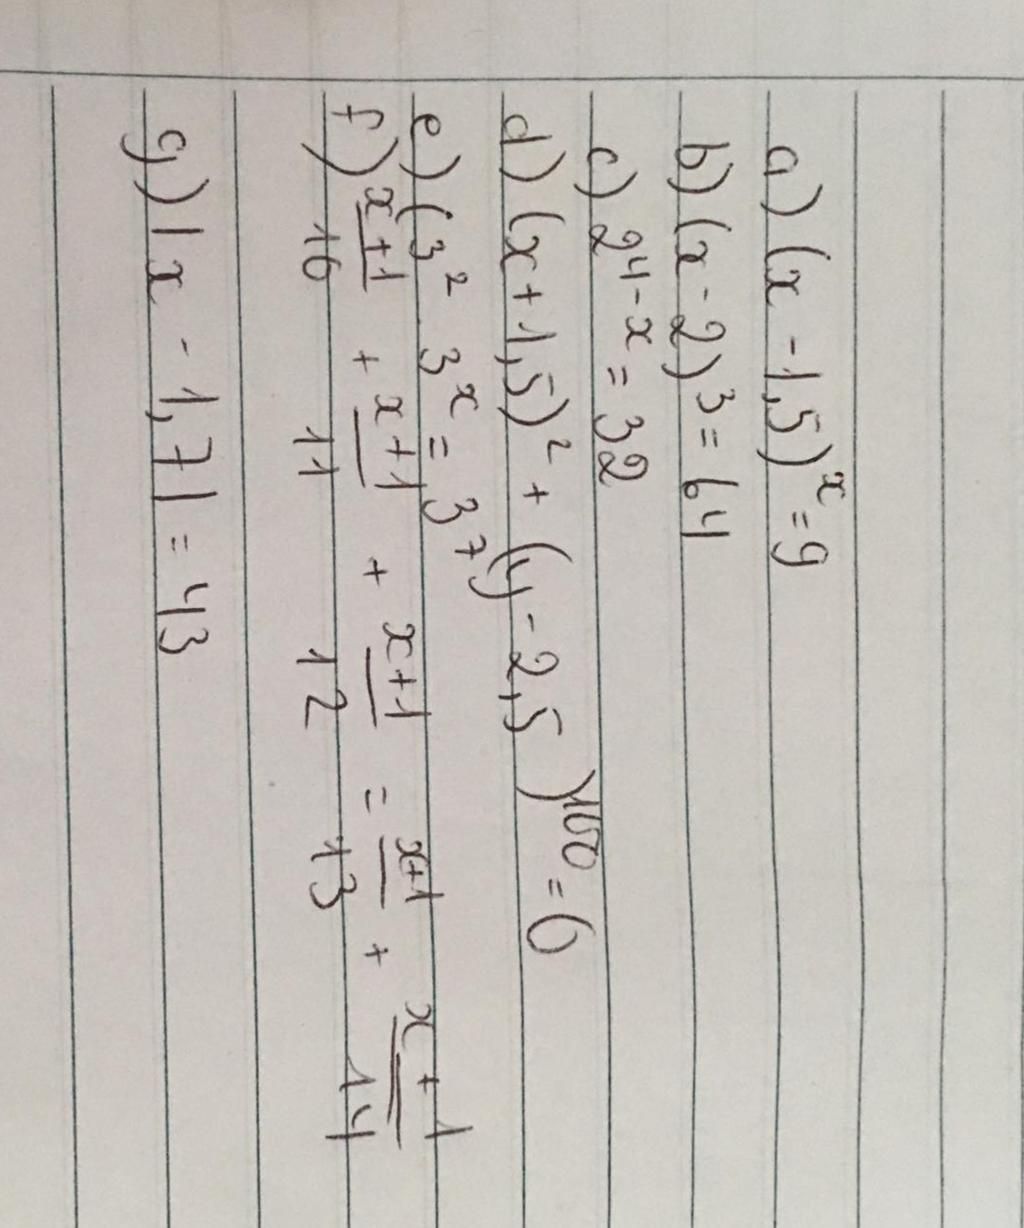 a) (x - 1,5)^x = 9
b) (x - 2)^3 = 64
c) 2^4-x = 32
d) (x + 1,5)^2 + (y - 2,5)^100 = 0
e) (3^2 . 3^x = 3^7
f) x+1/10 + x+1/11 + x+1/12 = x+1/13 + x+1/14
g) |x - 1,7| = 43